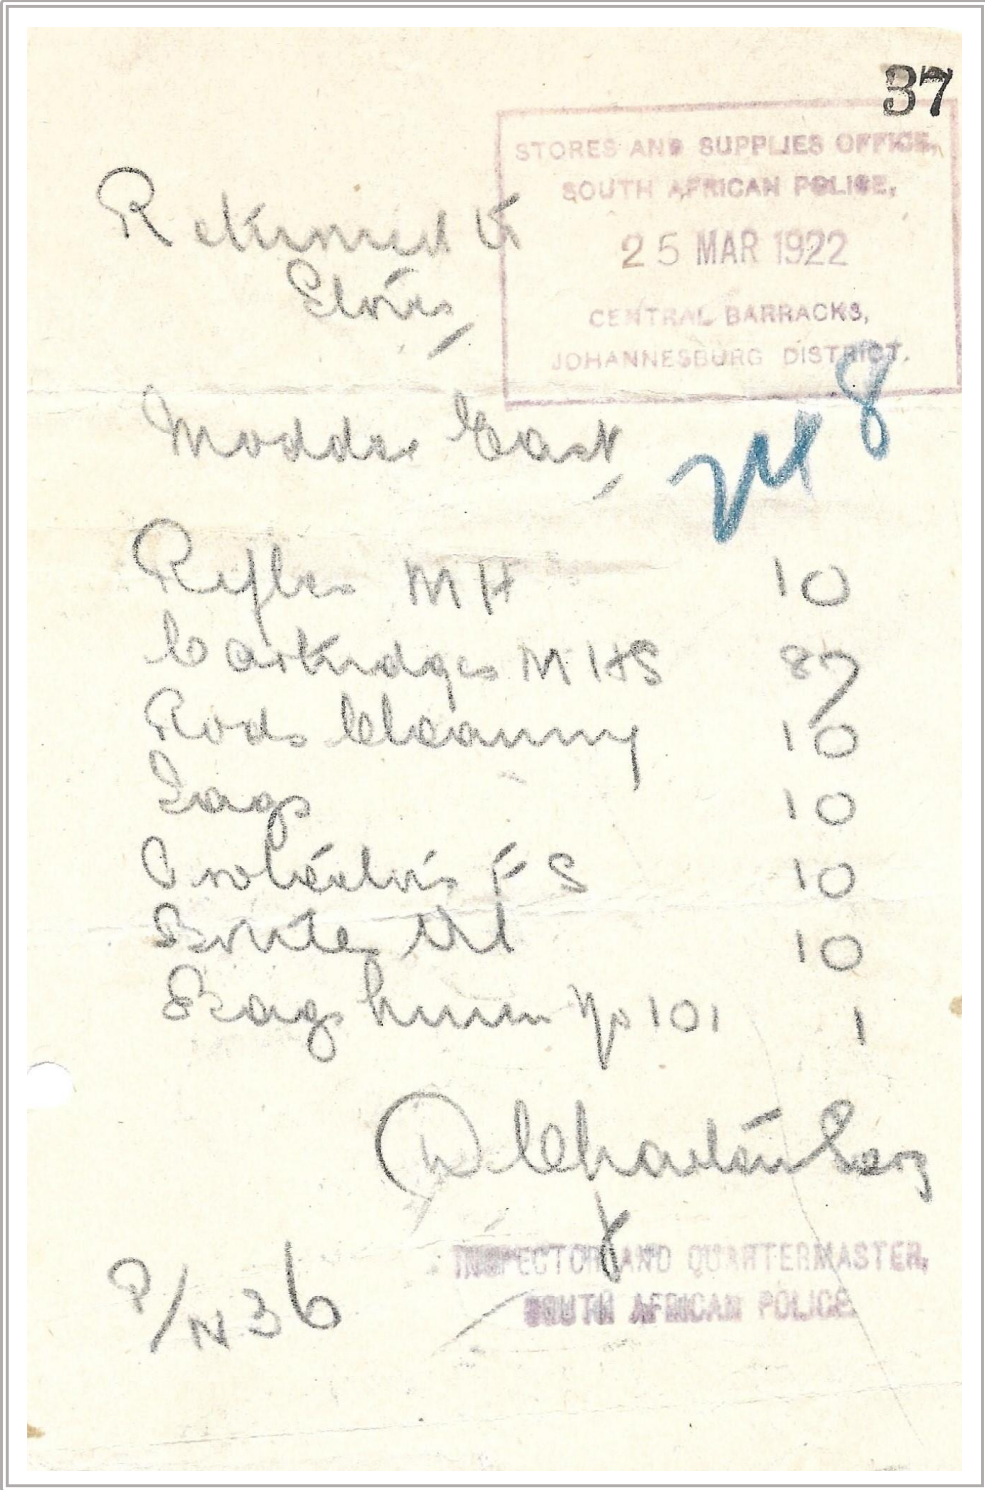 37
STORES AND SUPPLIES OFFICE,
SOUTH AFRICAN POLICE,
25 MAR 1922
CENTRAL BARRACKS,
JOHANNESBURG DISTRICT.
Returned to
Stores
Modder East
8
Rifles M H 10
Cartridges M HS 87
Rods Cleaning 10
Bags 10
Protectors F S 10
Bottles Oil 10
Bags No 101 1
Sergt
INSPECTOR AND QUARTERMASTER,
SOUTH AFRICAN POLICE.
P/N 36